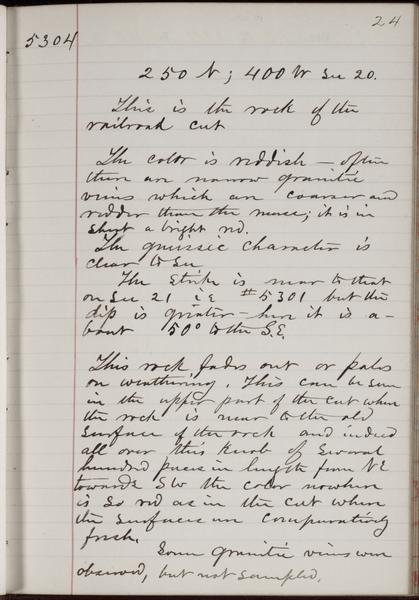 24
5304
250 N; 400 W Sec 20.
This is the rock of the
railroad cut
The color is reddish – often
there are narrow granitic
veins which are coarser and
redder than the mass; it is in
short a bright red.
The gneissic character is
clear to see
The strike is near to that
on Sec 21 i.e #5301 but the
dip is greater – here it is a-
bout 50° to the S.E.
This rock fades out or pales
on weathering. This can be seen
in the upper part of the cut where
the rock is near to the old
surface of the rock and indeed
all over this knob of several
hundred paces in length from NE
towards SW the color nowhere
is so red as in the cut where
the surfaces are comparatively
fresh.
Some granitic veins were
observed, but not sampled.